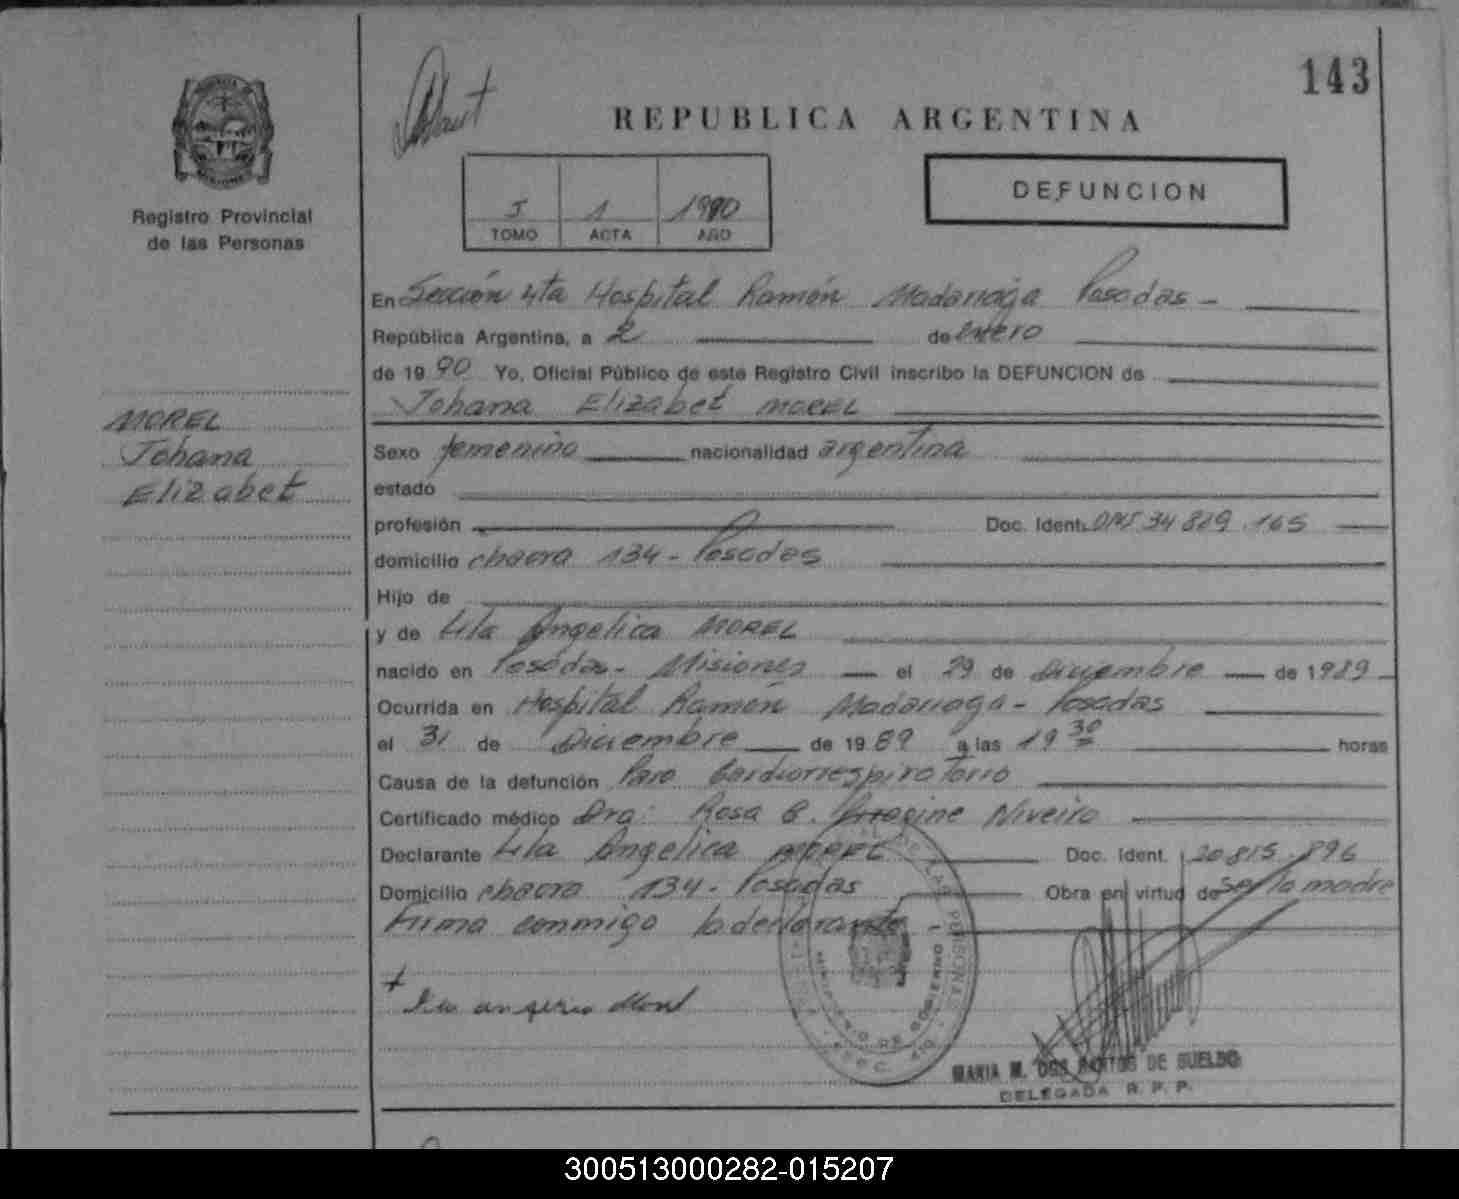 143
REPUBLICA ARGENTINA
DEFUNCION
Registro Provincial
de las Personas
1 1990
TOMO ACTA AÑO
En Sección 4ta Hospital Ramón Madariaga Posadas -
República Argentina, a 2 de enero
de 1990 Yo, Oficial Público de este Registro Civil inscribo la DEFUNCION de
Johana Elizabet MOREL
MOREL
Johana
Elizabet
Sexo femenino nacionalidad argentina
estado
profesión Doc. Ident. DNI 34 829.165
domicilio chacra 134 - Posadas
Hijo de
y de Lila Angelica MOREL
nacido en Posadas - Misiones el 29 de Diciembre de 1989
Ocurrida en Hospital Ramón Madariaga - Posadas
el 31 de Diciembre de 1989 a las 19 30 horas
Causa de la defunción Paro Cardiorrespiratorio
Certificado médico Dra: Rosa Niveiro
Declarante Lila Angelica MOREL Doc. Ident. 20.815.896
Domicilio chacra 134 - Posadas Obra en virtud de ser la madre
Firma conmigo la declarante -
MARIA M. DOS SANTOS DE SUELDO
DELEGADA R. P. P.
300513000282-015207